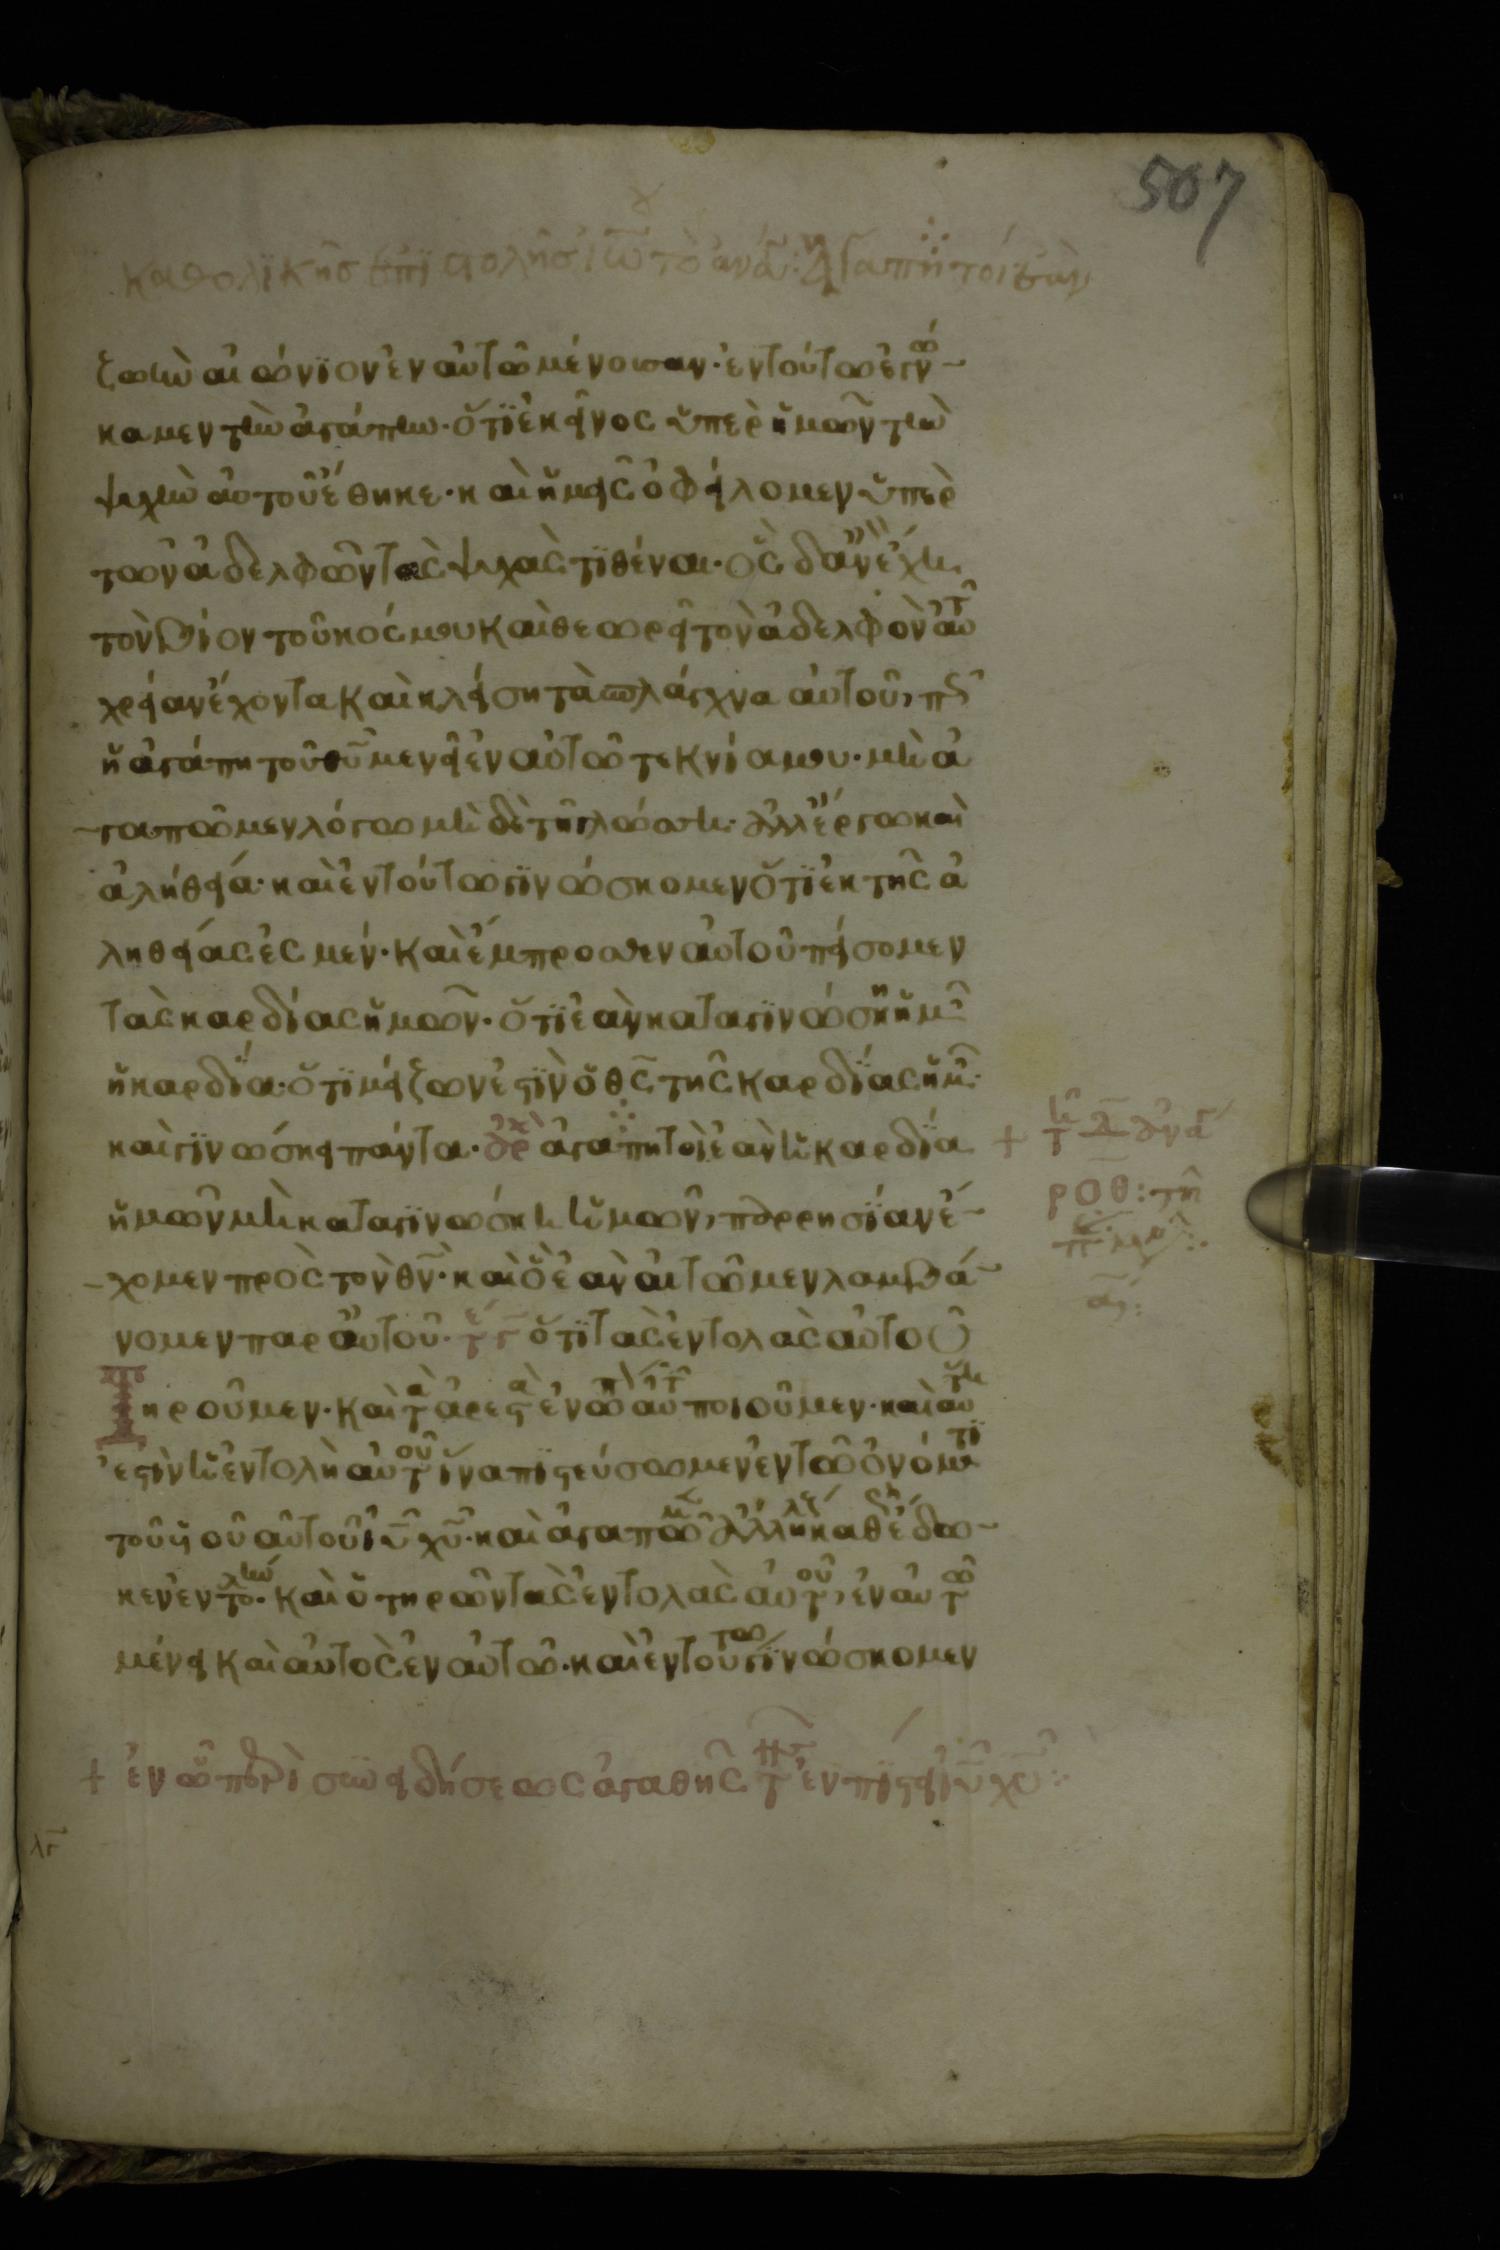 507
καθολικῆσ ἐπιστολῆσ ἰῶ τὸ ἀνά: Ἀγαπητοί ἐὰν
ζωὴν αἰώνϊον ἐν αὐτῶ μένουσαν· ἐν τούτω ἐγνώ-
καμεν τὴν ἀγάπην· ὅτϊ ἐκεῖνος ὑπὲρ ἡμῶν τὴν
ψυχὴν αὐτοῦ ἔθηκε· καὶ ἡμεῖς ὀφείλομεν ὑπὲρ
τῶν ἀδελφῶν τὰς ψυχὰς τϊθέναι· ὃς δ' ἂν ἔχη
τὸν βίον τοῦ κόσμου καὶ θεωρεῖ τὸν ἀδελφὸν αὐτ
χρείαν ἔχοντα καὶ κλείση τὰ σπλάγχνα αὐτοῦ, πῶς
ἡ ἀγάπη τοῦ θυ μενεῖ ἐν αὐτῶ τεκνία μου· μὴ ἀ
-γαπῶμεν λόγω μὴ δὲ τῆ γλώσση· ἀλλ' ἔργω καὶ
ἀληθεία· καὶ ἐν τούτω γϊνώσκομεν ὅτϊ ἐκ τῆς ἀ
ληθείας ἐσμέν· καὶ ἔμπροσθεν αὐτοῦ πείσομεν
τὰς καρδίας ἡμῶν· ὅτϊ ἐὰν καταγϊνώσκη ἡμ
ἡ καρδία· ὅτϊ μείζων ἐστϊν ὁ θς τῆς καρδίας ἡμ·
καὶ γϊνώσκει πάντα· ἀρχ ἀγαπητοὶ ἐὰν ἡ καρδία
ἡμῶν μὴ καταγϊνώσκη ἡμῶν, παρρησίαν ἔ-
-χομεν πρὸς τὸν θν· καὶ ὃ ἐὰν αἰτῶμεν λαμβά-
νομεν παρ' αὐτοῦ· τέ ὅτϊ τὰς ἐντολὰς αὐτοῦ
Τηροῦμεν· καὶ τὰ ἀρεστὰ ἐνώπιον αὐτ ποιοῦμεν· καὶ αὕτη
ἐστὶν ἡ ἐντολὴ αὐτοῦ ἵνα πϊστεύσωμεν ἐν τῶ ὀνόματϊ
τοῦ υἱοῦ αὐτοῦ ιυ χυ· καὶ ἀγαπῶμεν ἀλλήλς καθὼς ἔδω-
κεν ἐντολήν· καὶ ὁ τηρῶν τὰς ἐντολὰς αὐτοῦ, ἐν αὐτῶ
μένει καὶ αὐτὸς ἐν αὐτῶ· καὶ ἐν τούτω γϊνώσκομεν